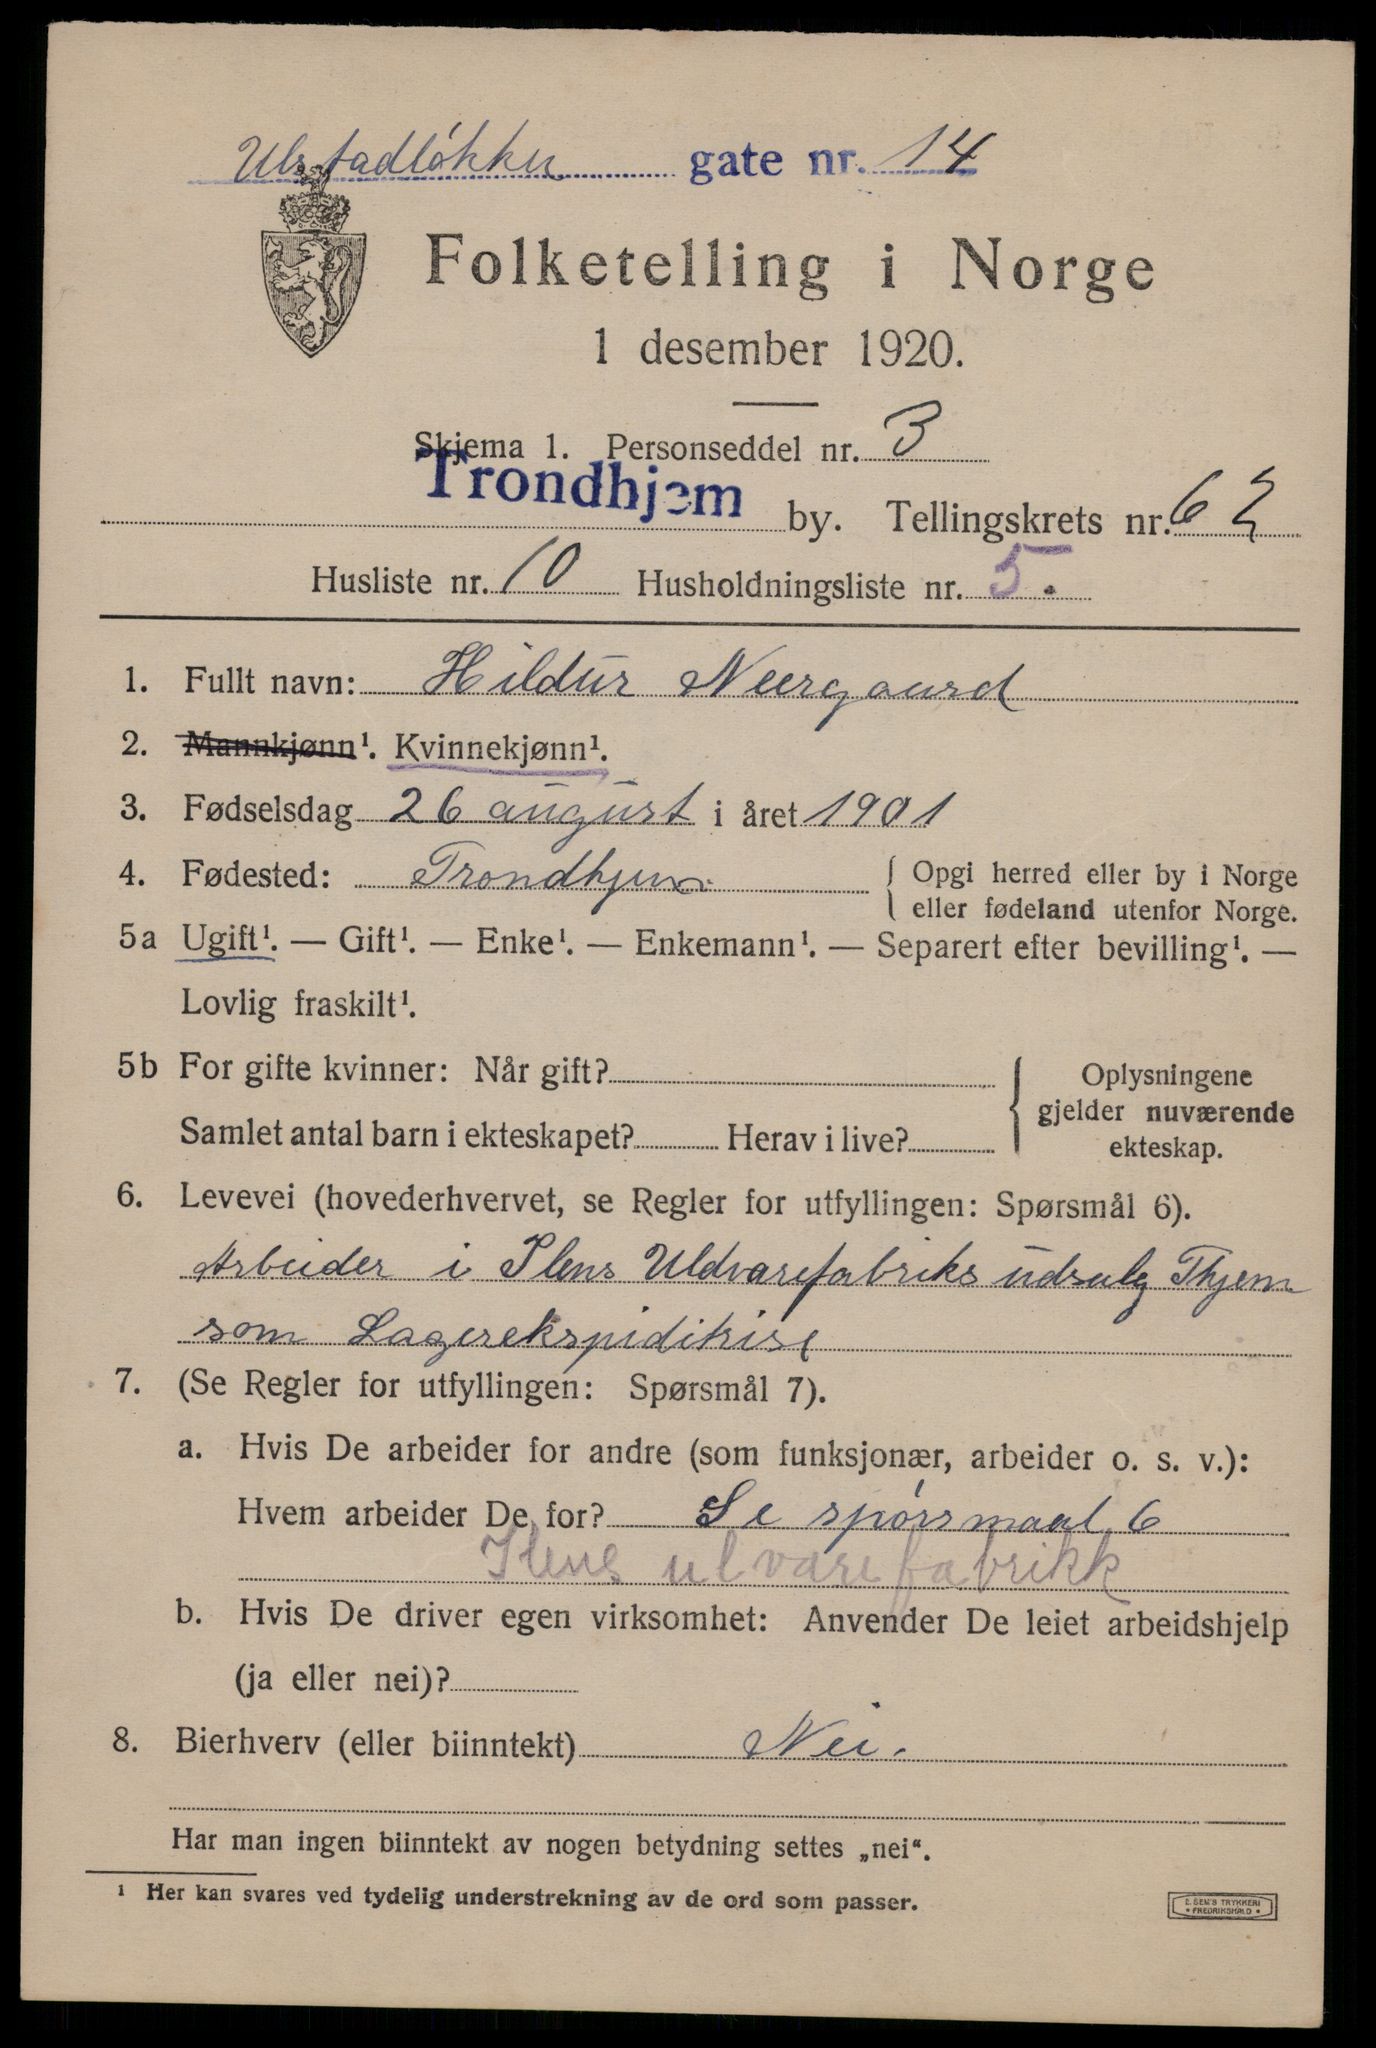 Ulstadløkku gate nr. 14
Folketelling i Norge
1 desember 1920.
Skjema 1. Personseddel nr. 3
Trondhjem by. Tellingskrets nr. 62
Husliste nr. 10 Husholdningsliste nr. 5.
1. Fullt navn: Hildur Neergaard
2. Mannkjønn¹. Kvinnekjønn¹.
3. Fødselsdag 26 august i året 1901
4. Fødested: Trondhjem { Opgi herred eller by i Norge
eller fødeland utenfor Norge.
5a Ugift¹. — Gift¹. — Enke¹. — Enkemann¹. — Separert efter bevilling¹. —
Lovlig fraskilt¹.
5b For gifte kvinner: Når gift? { Oplysningene
gjelder nuværende
Samlet antal barn i ekteskapet? Herav i live?
ekteskap.
6. Levevei (hovederhvervet, se Regler for utfyllingen: Spørsmål 6).
Arbeider i Ilens Uldvarefabriks udsalg Thjem
som Lagerekspiditrise
7. (Se Regler for utfyllingen: Spørsmål 7).
a. Hvis De arbeider for andre (som funksjonær, arbeider o. s. v.):
Hvem arbeider De for? Se spørsmaal 6
Ilens ulvarefabrikk
b. Hvis De driver egen virksomhet: Anvender De leiet arbeidshjelp
(ja eller nei)?
8. Bierhverv (eller biinntekt) Nei.
Har man ingen biinntekt av nogen betydning settes „nei“.
¹ Her kan svares ved tydelig understrekning av de ord som passer.
E. SEM'S TRYKKERI
• FREDRIKSHALD •